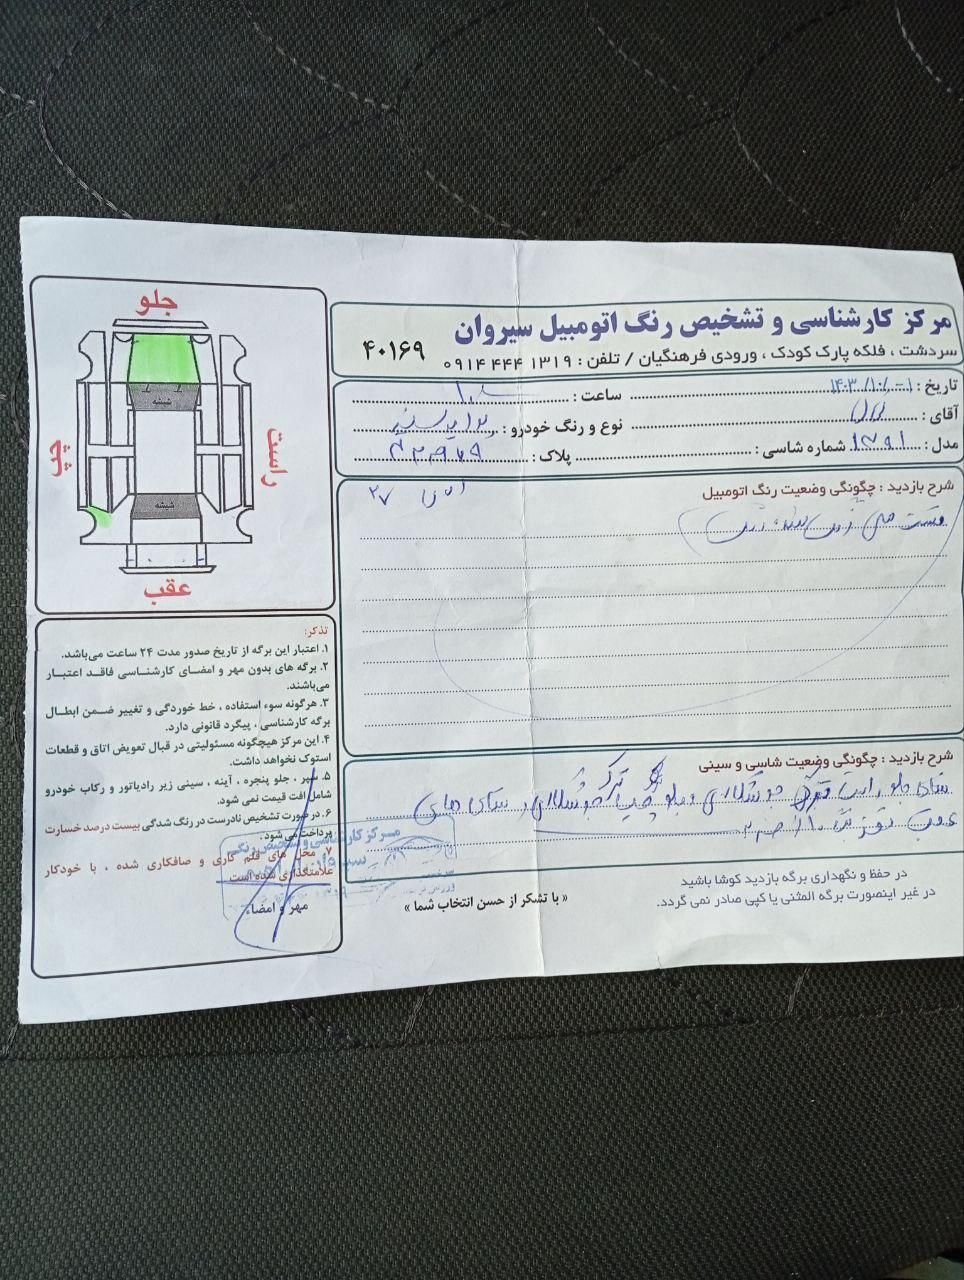 مرکز کارشناسی و تشخیص رنگ اتومبیل سیروان
سردشت ، فلکه پارک کودک ، ورودی فرهنگیان / تلفن : ۱۳۱۹ ۴۴۴ ۰۹۱۴
۴۰۱۶۹
تاریخ : ۱۴۰۳/۱۰/-۱ ساعت :
آقای : نوع و رنگ خودرو : پراید سفید
مدل : ۱۳۹۱ شماره شاسی : پلاک :
شرح بازدید : چگونگی وضعیت رنگ اتومبیل
ایران ۲۷
قسمت های
شرح بازدید : چگونگی وضعیت شاسی و سینی
در حفظ و نگهداری برگه بازدید کوشا باشید
در غیر اینصورت برگه المثنی یا کپی صادر نمی گردد.
« با تشکر از حسن انتخاب شما »
جلو
راست
چپ
شیشه
شیشه
عقب
تذکر:
۱. اعتبار این برگه از تاریخ صدور مدت ۲۴ ساعت می‌باشد.
۲. برگه های بدون مهر و امضای کارشناسی فاقد اعتبار
می‌باشند.
۳. هرگونه سوء استفاده ، خط خوردگی و تغییر ضمن ابطال
برگه کارشناسی ، پیگرد قانونی دارد.
۴. این مرکز هیچگونه مسئولیتی در قبال تعویض اتاق و قطعات
استوک نخواهد داشت.
۵. سپر ، جلو پنجره ، آینه ، سینی زیر رادیاتور و رکاب خودرو
شامل افت قیمت نمی شود.
۶. در صورت تشخیص نادرست در رنگ شدگی بیست درصد خسارت
پرداخت می شود.
۷. محل های قلم کاری و صافکاری شده ، با خودکار
علامتگذاری شده است
مهر و امضاء
مرکز کارشناسی و تشخیص رنگ